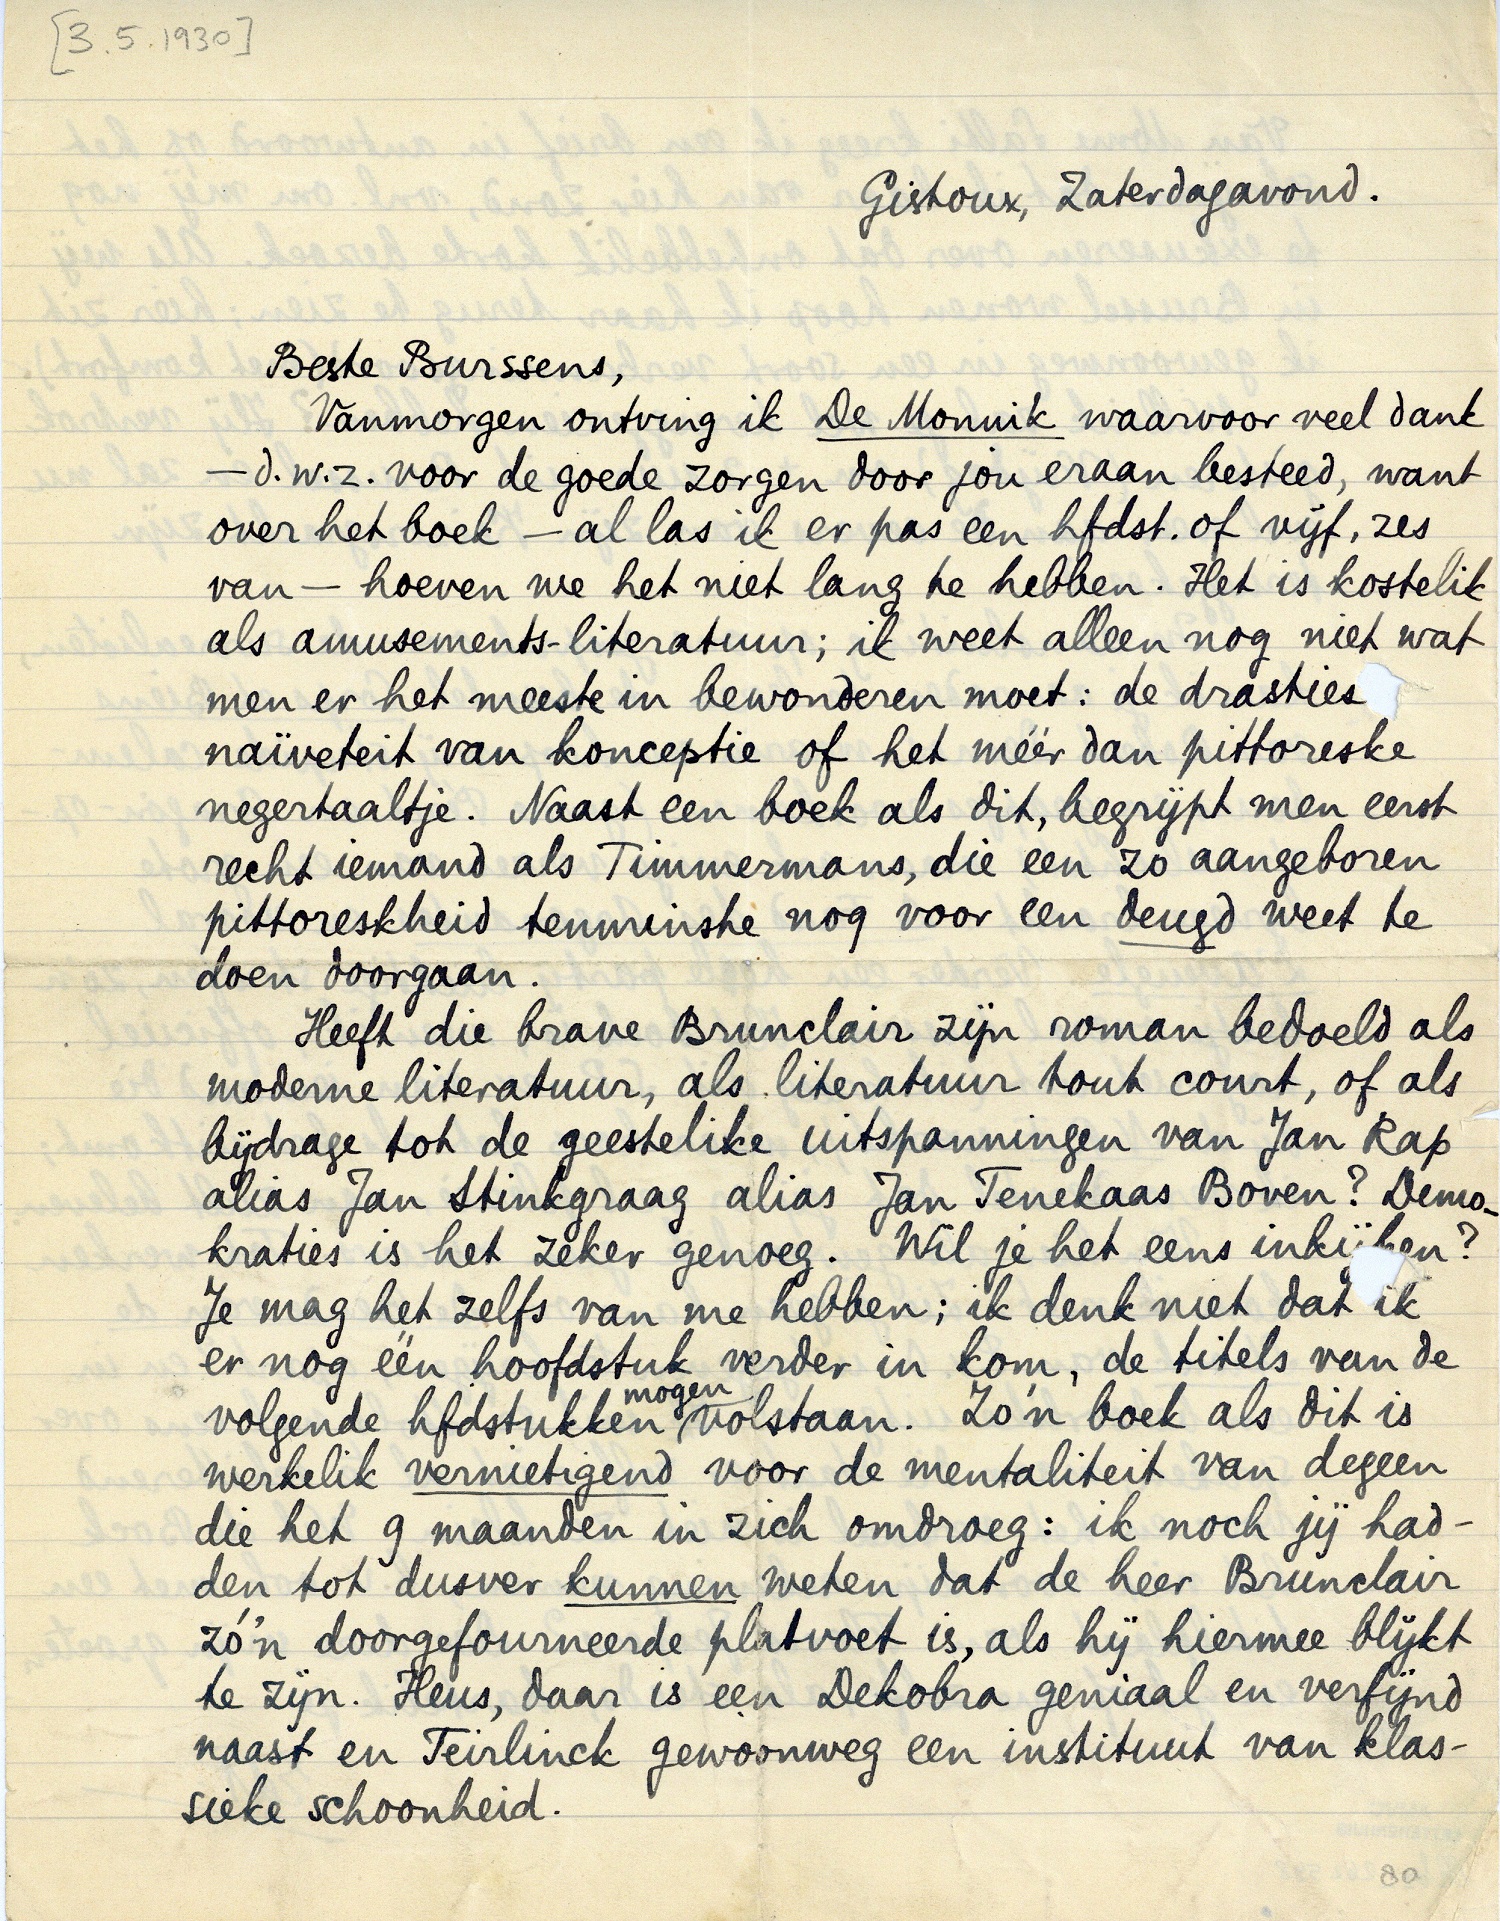 [3.5.1930]
Gistoux, Zaterdagavond.
Beste Burssens,
Vanmorgen ontving ik De Monnik waarvoor veel dank
— d.w.z. voor de goede zorgen door jou eraan besteed, want
over het boek — al las ik er pas een hfdst. of vijf, zes
van — hoeven we het niet lang te hebben. Het is kostelik
als amusements-literatuur; ik weet alleen nog niet wat
men er het meeste in bewonderen moet: de drasties
naïveteit van konceptie of het méér dan pittoreske
negertaaltje. Naast een boek als dit, begrijpt men eerst
recht iemand als Timmermans, die een zo aangeboren
pittoreskheid tenminste nog voor een deugd weet te
doen doorgaan.
Heeft die brave Brunclair zijn roman bedoeld als
moderne literatuur, als literatuur tout court, of als
bijdrage tot de geestelike uitspanningen van Jan Rap
alias Jan Stinkgraag alias Jan Tenekaas Boven? Demo-
kraties is het zeker genoeg. Wil je het eens inkijken?
Je mag het zelfs van me hebben; ik denk niet dat ik
er nog één hoofdstuk verder in kom, de titels van de
volgende hfdstukken mogen volstaan. Zo'n boek als dit is
werkelik vernietigend voor de mentaliteit van degeen
die het 9 maanden in zich omdroeg: ik noch jij had-
den tot dusver kunnen weten dat de heer Brunclair
zó'n doorgefourneerde platvoet is, als hij hiermee blijkt
te zijn. Heus, daar is een Dekobra geniaal en verfijnd
naast en Teirlinck gewoonweg een instituut van klas-
sieke schoonheid.
80